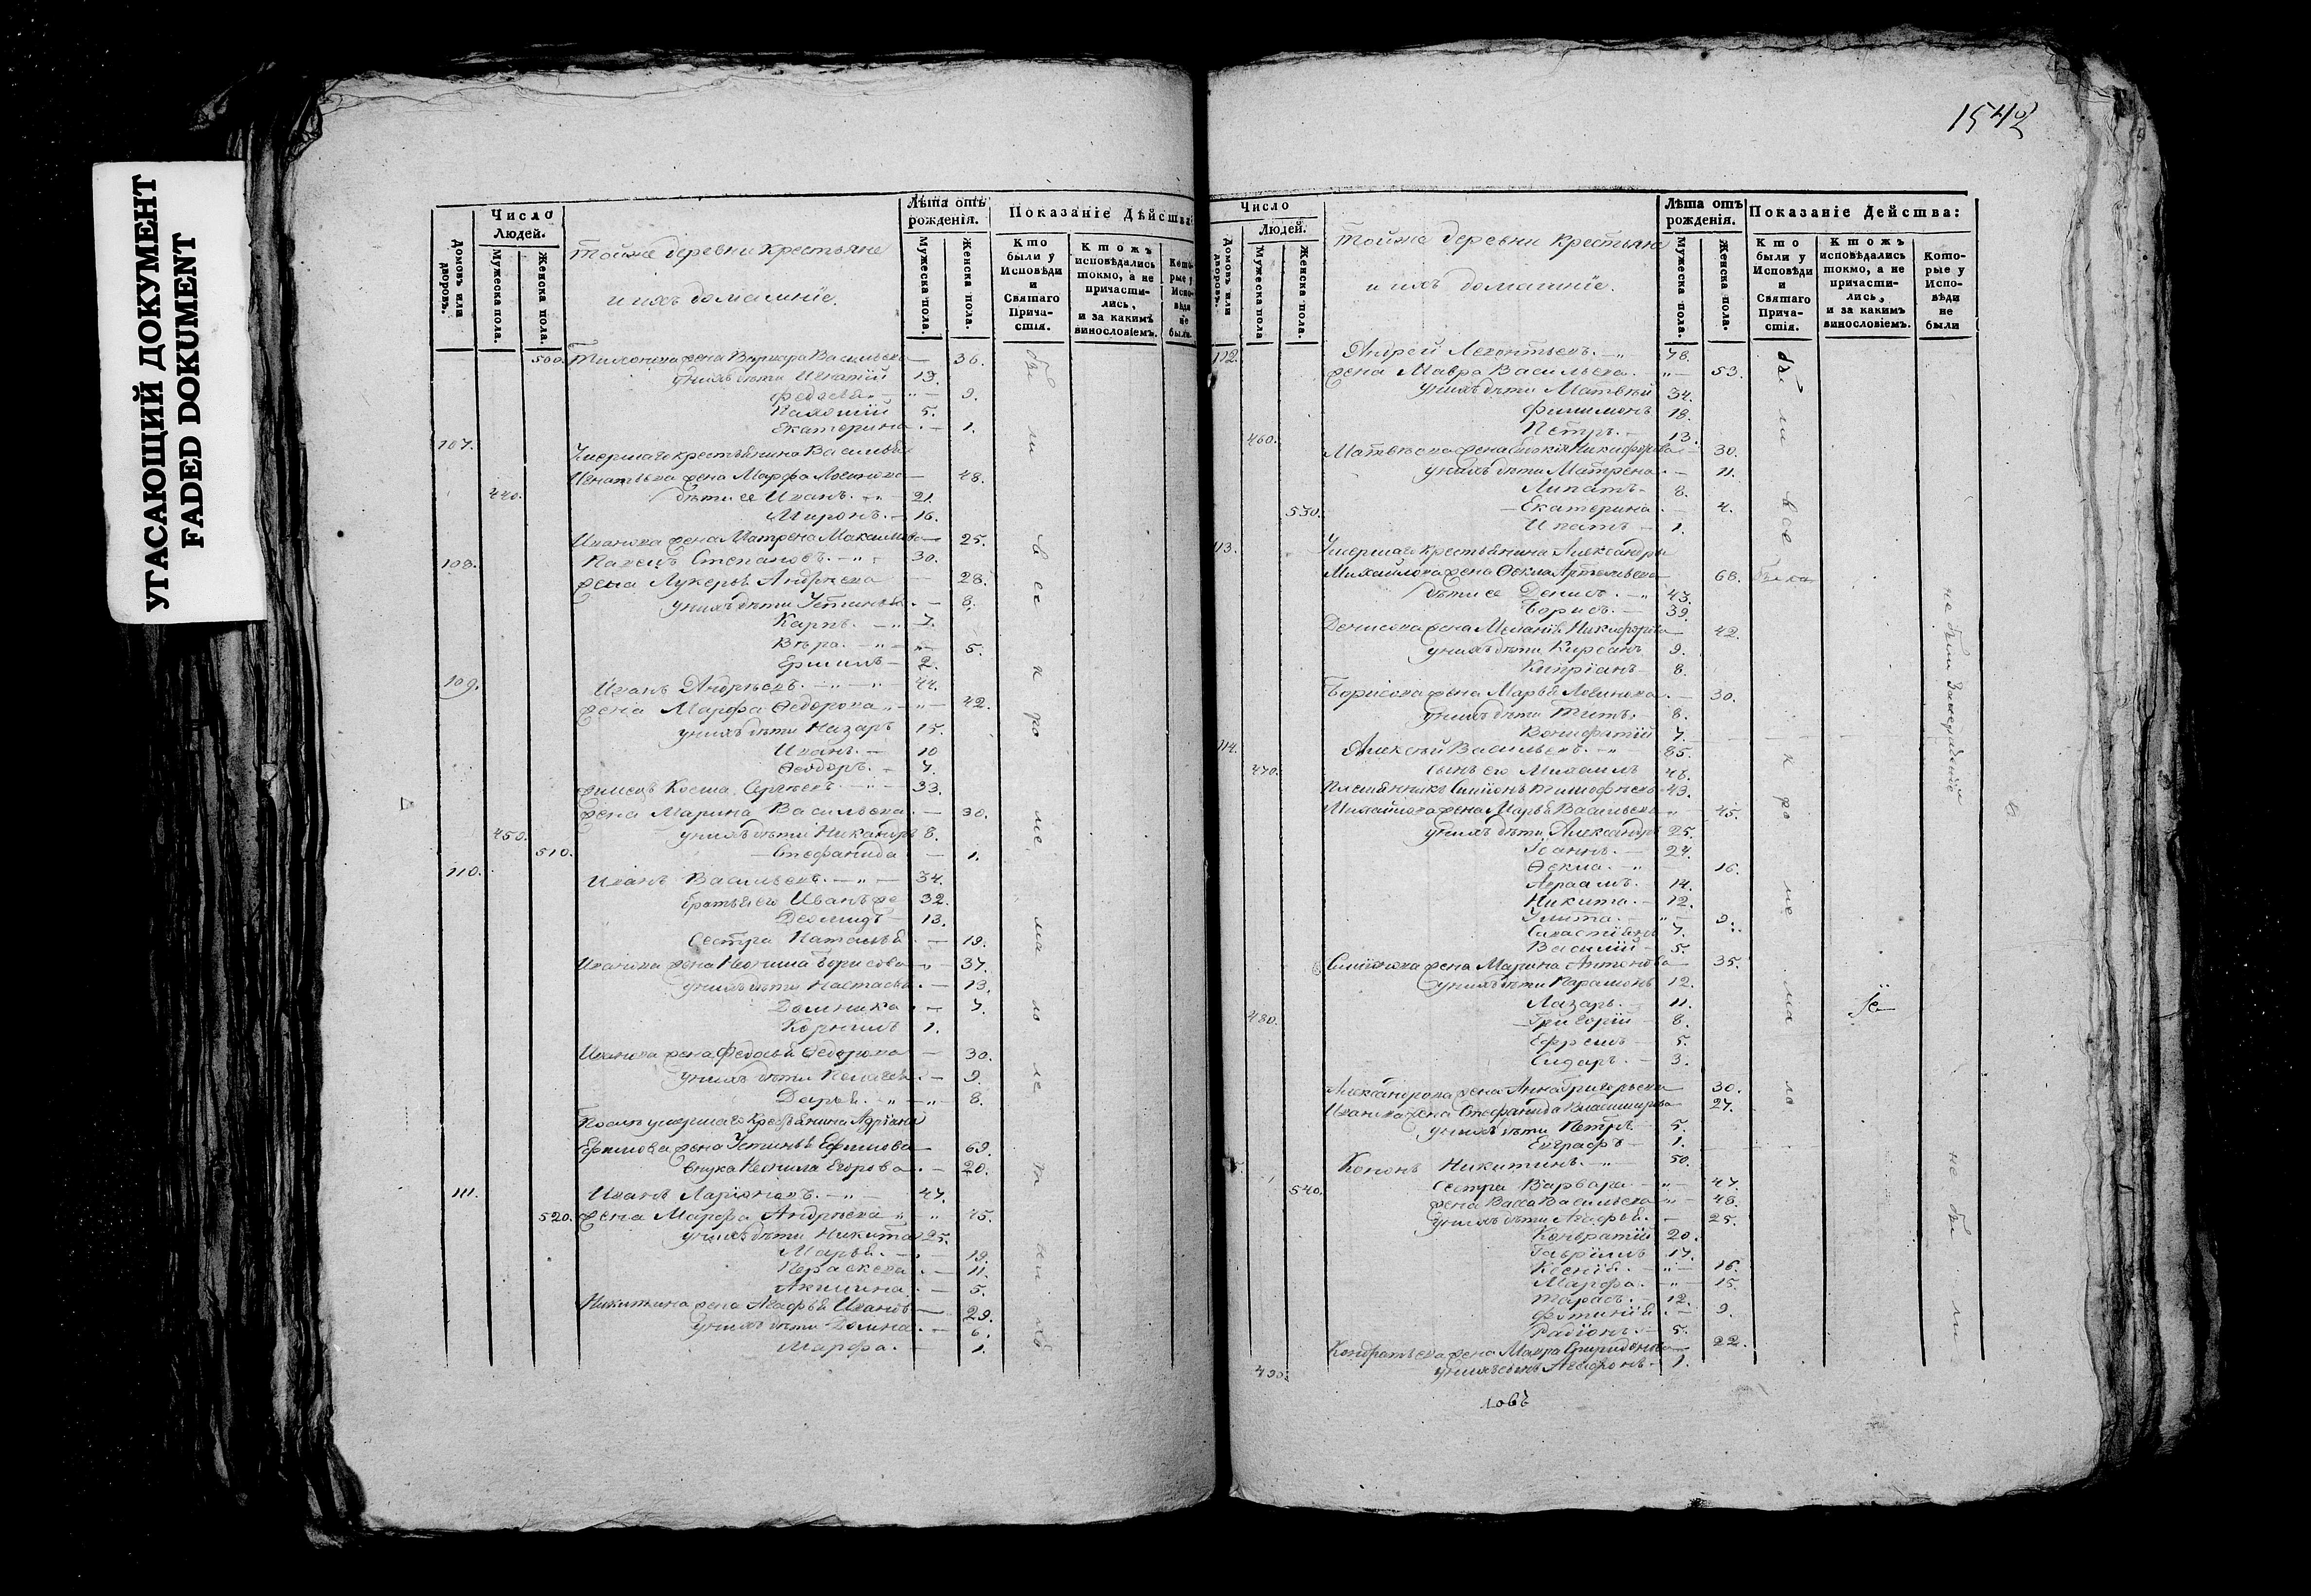 УГАСАЮЩИЙ ДОКУМЕНТ
FADED DOKUMENT
Число
Людей.
Домовъ или дворовъ.
Мужеска пола.
Женска пола.
Тойже деревни крестьяне
и ихъ домашніе.
Лѣта отъ рожденія.
Мужеска пола.
Женска пола.
Показаніе Дѣйства
Кто были у Исповѣди и Святаго Прича-стія.
Ктожъ исповѣдались токмо, а не причасти-лись, и за какимъ винословіемъ.
Кото-рые у Испо-вѣди не были.
500. жена Васильева — 36.
у нихъ дѣти Игнатій 13.
Федосья — 9.
5.
Екатерина — 1.
107. Умершаго крестьянина Василья
Игнатьева жена Марфа Логинова — 48.
440. дѣти ее Иванъ — 21.
Миронъ — 16.
Иванова жена Матрена Максимова — 25.
108. Павелъ Степановъ — 30.
жена Лукерья Андреева — 28.
у нихъ дѣти Устинья — 8.
Карпъ — 7.
Вѣра — 5.
Ермилъ — 2.
109. Иванъ Андреевъ — 44.
жена Марфа Ѳедорова — 42.
у нихъ дѣти Назаръ 15.
Иванъ — 10
Ѳеодоръ — 7.
Косма Сергѣевъ — 33.
жена Марина Васильева — 30.
450. у нихъ дѣти Никандръ 8.
510. Стефанида — 1.
110. Иванъ Васильевъ — 34.
братья его Иванъ же 32.
Деомидъ — 13.
Сестра Наталья — 19.
Иванова жена Неонила Борисова — 37.
у нихъ дѣти Настасья — 13.
Домника — 7.
Корнилъ 1.
Иванова жена Федосья Ѳедорова — 30.
у нихъ дѣти Пелагея — 9.
Дарья — 8.
Послѣ умершаго крестьянина Адріана
Ефимова жена Устинья Ефимова — 69.
внука Неонила Егорова — 20.
111. Иванъ Ларіоновъ — 47.
520. жена Марфа Андреева — 45.
у нихъ дѣти Никита 25.
Марья — 19.
Параскева — 11.
Акилина — 5.
Никитина жена Агафья Иванова — 29.
у нихъ дѣти Домна — 6.
Марфа — 1.
бы ли все кро ме ма ло ле т ни хъ
1542
Число
Людей.
Домовъ или дворовъ.
Мужеска пола
Женска пола.
Тойже деревни крестьяне
и ихъ домашніе.
Лѣта отъ рожденія.
Мужеска пола.
Женска пола.
Показаніе Действа:
Кто были у Исповѣди и Святаго Прича-стія.
Ктожъ исповѣдались токмо, а не причасти-лись, и за какимъ винословіемъ.
Кото-рые у Испо-вѣди не были
112. Андрей Леонтьевъ — 78.
жена Мавра Васильева — 53.
у нихъ дѣти Матвѣй 34.
Филимонъ 18.
460. Петръ — 13.
Матвѣева жена Никифорова — 30.
у нихъ дѣти Матрена — 11.
Липатъ — 8.
530. Екатерина — 4.
Ипатъ — 1.
113. Умершаго крестьянина Александра
Михайлова жена Ѳекла Артемьева — 68. была
дѣти ее Денисъ — 43.
Борисъ — 39.
Денисова жена Меланія Никифорова — 42.
у нихъ дѣти Кирсанъ 9.
Кипріанъ 8.
Борисова жена Марья Логинова — 30.
у нихъ дѣти Титъ 8.
Вонифатій 7.
114. Алексѣй Васильевъ — 85.
470. сынъ его Михаилъ 48.
племянникъ Симіонъ Тимофѣевъ 43.
Михайлова жена Марья Васильева — 45.
у нихъ дѣти Александръ 25.
Іоаннъ — 24.
Ѳекла — 16.
Авраамъ — 14.
Никита — 12.
Улита — 9.
Савастіянъ 7.
Василій — 5.
Симіонова жена Марина Антонова — 35.
у нихъ дѣти Парамонъ 12.
Лазарь — 11.
480. Григорій — 8.
Ефремъ — 5.
Сидоръ — 3.
Александрова жена Анна Григорьева — 30.
Иванова жена Стефанида Владимирова — 27.
у нихъ дѣти Петръ — 5.
Евграфъ — 1.
Кононъ Никитинъ — 50.
540. Сестра Варвара — 47.
жена Васса Васильева — 48.
у нихъ дѣти Агафья — 25.
Кондратій 20.
Гавріилъ 17.
Ксенія — 16.
Марфа — 15.
Тарасъ — 12.
Фотинія — 9.
Радіонъ — 5.
Кондратьева жена Мавра Спиридонова — 22.
490. у нихъ сынъ Агафонъ — 1.
бы ли все кро ме ма ло
не были
не бы ли